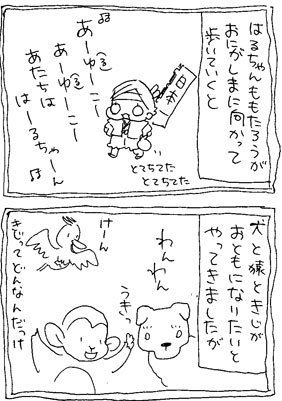 はるちゃんももたろうが
おにがしまに向かって
歩いていくと
♪
あーゆ(る)ーこー
あーゆ(る)ーこー
あたちは
はーるちゃーん♪
とてちてた
とてちてた
犬と猿ときじが
おともになりたいと
やってきましたが
わんわん
うきっ
けーん
きじってどんなんだっけ